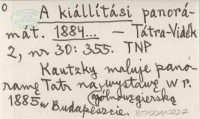 A kiállítási panorá-
mát. 1884... — Tátra-Vidék
2, nr 30: 355. TNP
Kautzky maluje pano-
ramę Tatr na wystawę w r.
1885 w Budapeszcie.
ogólnowęgierską